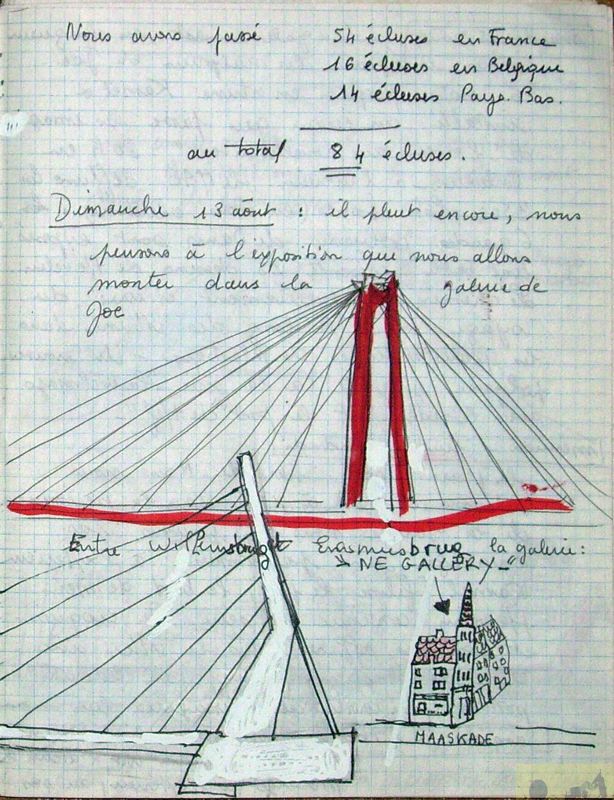 Nous avons passé 54 écluses en France
16 écluses en Belgique
14 écluses Pays-Bas.
au total 84 écluses.
Dimanche 13 août : il pleut encore, nous
pensons à l'exposition que nous allons
monter dans la galerie de
Joe
Entre Willemsbrug et Erasmusbrug la galerie :
"NE GALLERY"
MAASKADE